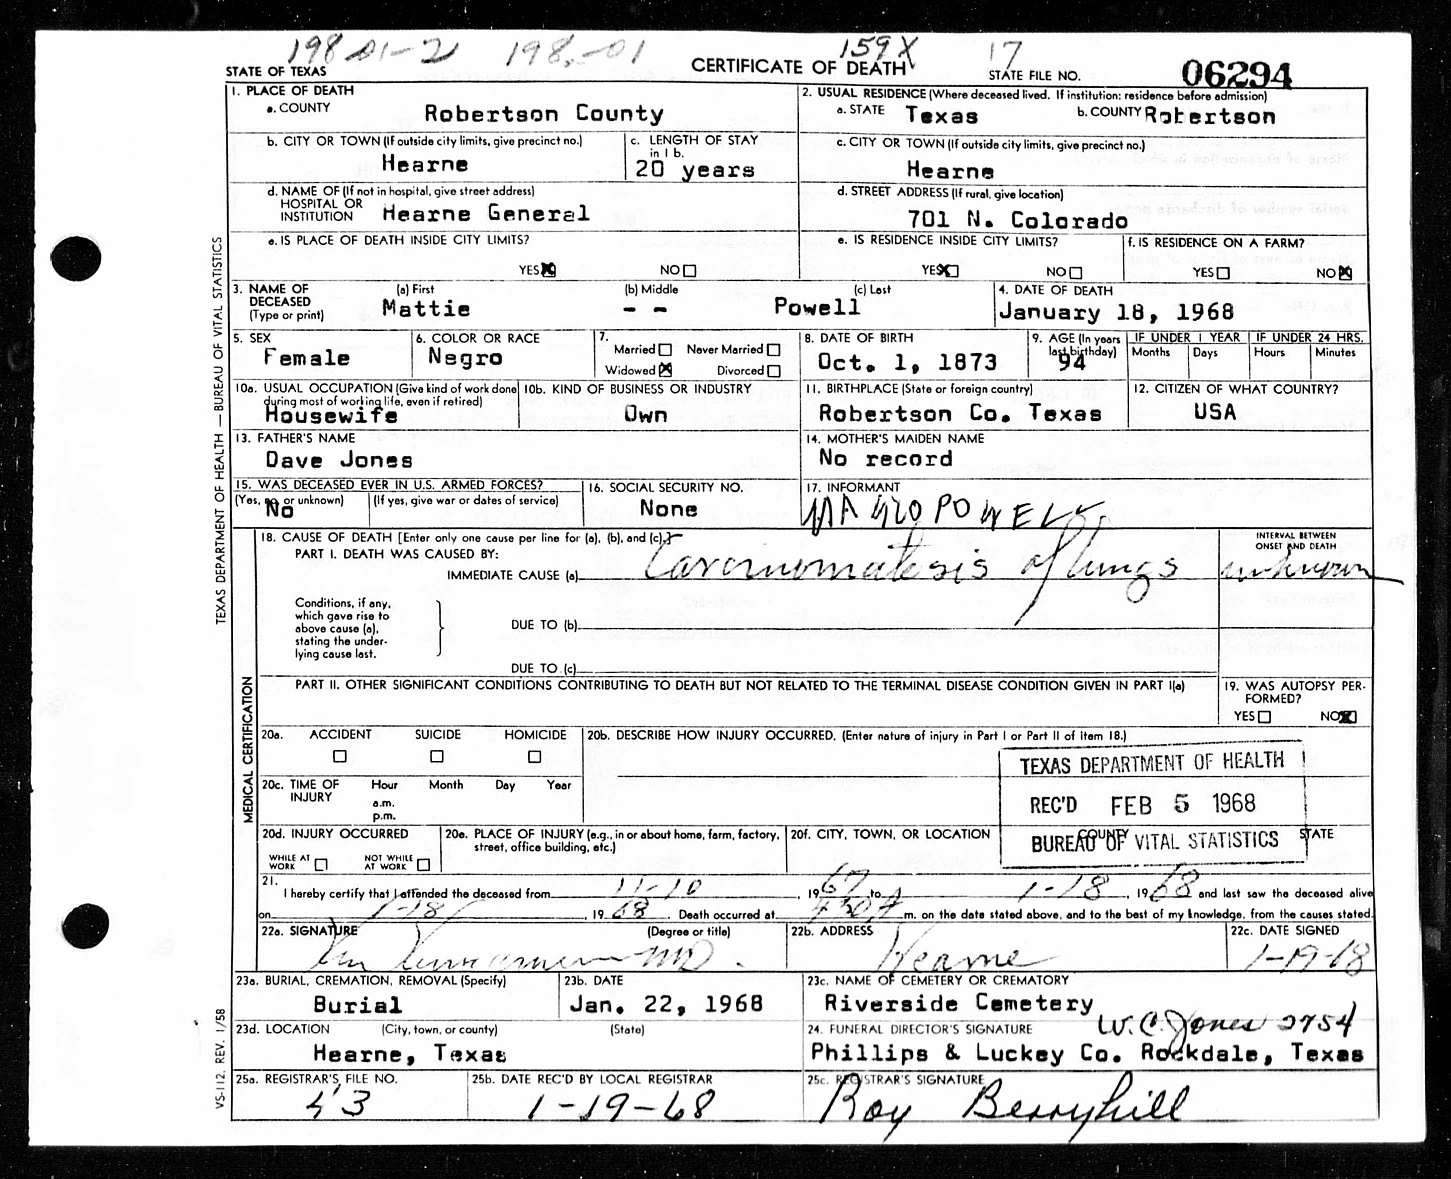 198-01-2 198.-01 159X 17
STATE OF TEXAS CERTIFICATE OF DEATH STATE FILE NO. 06294
1. PLACE OF DEATH
a. COUNTY Robertson County
2. USUAL RESIDENCE (Where deceased lived. If institution: residence before admission)
a. STATE Texas b. COUNTY Robertson
b. CITY OR TOWN (If outside city limits, give precinct no.)
Hearne
c. LENGTH OF STAY in 1 b.
20 years
c. CITY OR TOWN (If outside city limits, give precinct no.)
Hearne
d. NAME OF (If not in hospital, give street address)
HOSPITAL OR
INSTITUTION Hearne General
d. STREET ADDRESS (If rural, give location)
701 N. Colorado
e. IS PLACE OF DEATH INSIDE CITY LIMITS?
YES X NO
e. IS RESIDENCE INSIDE CITY LIMITS?
YES X NO
f. IS RESIDENCE ON A FARM?
YES NO X
3. NAME OF DECEASED (Type or print)
(a) First (b) Middle (c) Last
Mattie - - Powell
4. DATE OF DEATH
January 18, 1968
5. SEX
Female
6. COLOR OR RACE
Negro
7.
Married Never Married
Widowed X Divorced
8. DATE OF BIRTH
Oct. 1, 1873
9. AGE (In years last birthday)
94
IF UNDER 1 YEAR IF UNDER 24 HRS.
Months Days Hours Minutes
10a. USUAL OCCUPATION (Give kind of work done during most of working life, even if retired)
Housewife
10b. KIND OF BUSINESS OR INDUSTRY
Own
11. BIRTHPLACE (State or foreign country)
Robertson Co. Texas
12. CITIZEN OF WHAT COUNTRY?
USA
13. FATHER'S NAME
Dave Jones
14. MOTHER'S MAIDEN NAME
No record
15. WAS DECEASED EVER IN U.S. ARMED FORCES?
(Yes, no or unknown) (If yes, give war or dates of service)
No
16. SOCIAL SECURITY NO.
None
17. INFORMANT
POWELL
18. CAUSE OF DEATH [Enter only one cause per line for (a), (b), and (c).]
PART I. DEATH WAS CAUSED BY:
IMMEDIATE CAUSE (a) Carcinomatosis of lungs
INTERVAL BETWEEN ONSET AND DEATH
unknown
Conditions, if any,
which gave rise to
above cause (a),
stating the under-
lying cause last.
DUE TO (b)
DUE TO (c)
PART II. OTHER SIGNIFICANT CONDITIONS CONTRIBUTING TO DEATH BUT NOT RELATED TO THE TERMINAL DISEASE CONDITION GIVEN IN PART I(a)
19. WAS AUTOPSY PER-
FORMED?
YES NO X
20a. ACCIDENT SUICIDE HOMICIDE
20b. DESCRIBE HOW INJURY OCCURRED. (Enter nature of injury in Part I or Part II of Item 18.)
20c. TIME OF INJURY Hour Month Day Year
a.m.
p.m.
TEXAS DEPARTMENT OF HEALTH
REC'D FEB 5 1968
BUREAU OF VITAL STATISTICS
20d. INJURY OCCURRED
WHILE AT WORK NOT WHILE AT WORK
20e. PLACE OF INJURY (e.g., in or about home, farm, factory,
street, office building, etc.)
20f. CITY, TOWN, OR LOCATION COUNTY STATE
21.
I hereby certify that I attended the deceased from 11-10, 1967 to 1-18, 1968 and last saw the deceased alive
on 1-18, 1968. Death occurred at 430A m. on the date stated above, and to the best of my knowledge, from the causes stated.
22a. SIGNATURE (Degree or title)
MD.
22b. ADDRESS
Hearne
22c. DATE SIGNED
1-19-68
23a. BURIAL, CREMATION, REMOVAL (Specify)
Burial
23b. DATE
Jan. 22, 1968
23c. NAME OF CEMETERY OR CREMATORY
Riverside Cemetery
23d. LOCATION (City, town, or county) (State)
Hearne, Texas
24. FUNERAL DIRECTOR'S SIGNATURE W.C. Jones 2754
Phillips & Luckey Co. Rockdale, Texas
25a. REGISTRAR'S FILE NO.
43
25b. DATE REC'D BY LOCAL REGISTRAR
1-19-68
25c. REGISTRAR'S SIGNATURE
Roy Berryhill
TEXAS DEPARTMENT OF HEALTH — BUREAU OF VITAL STATISTICS
MEDICAL CERTIFICATION
VS-112, REV. 1/58